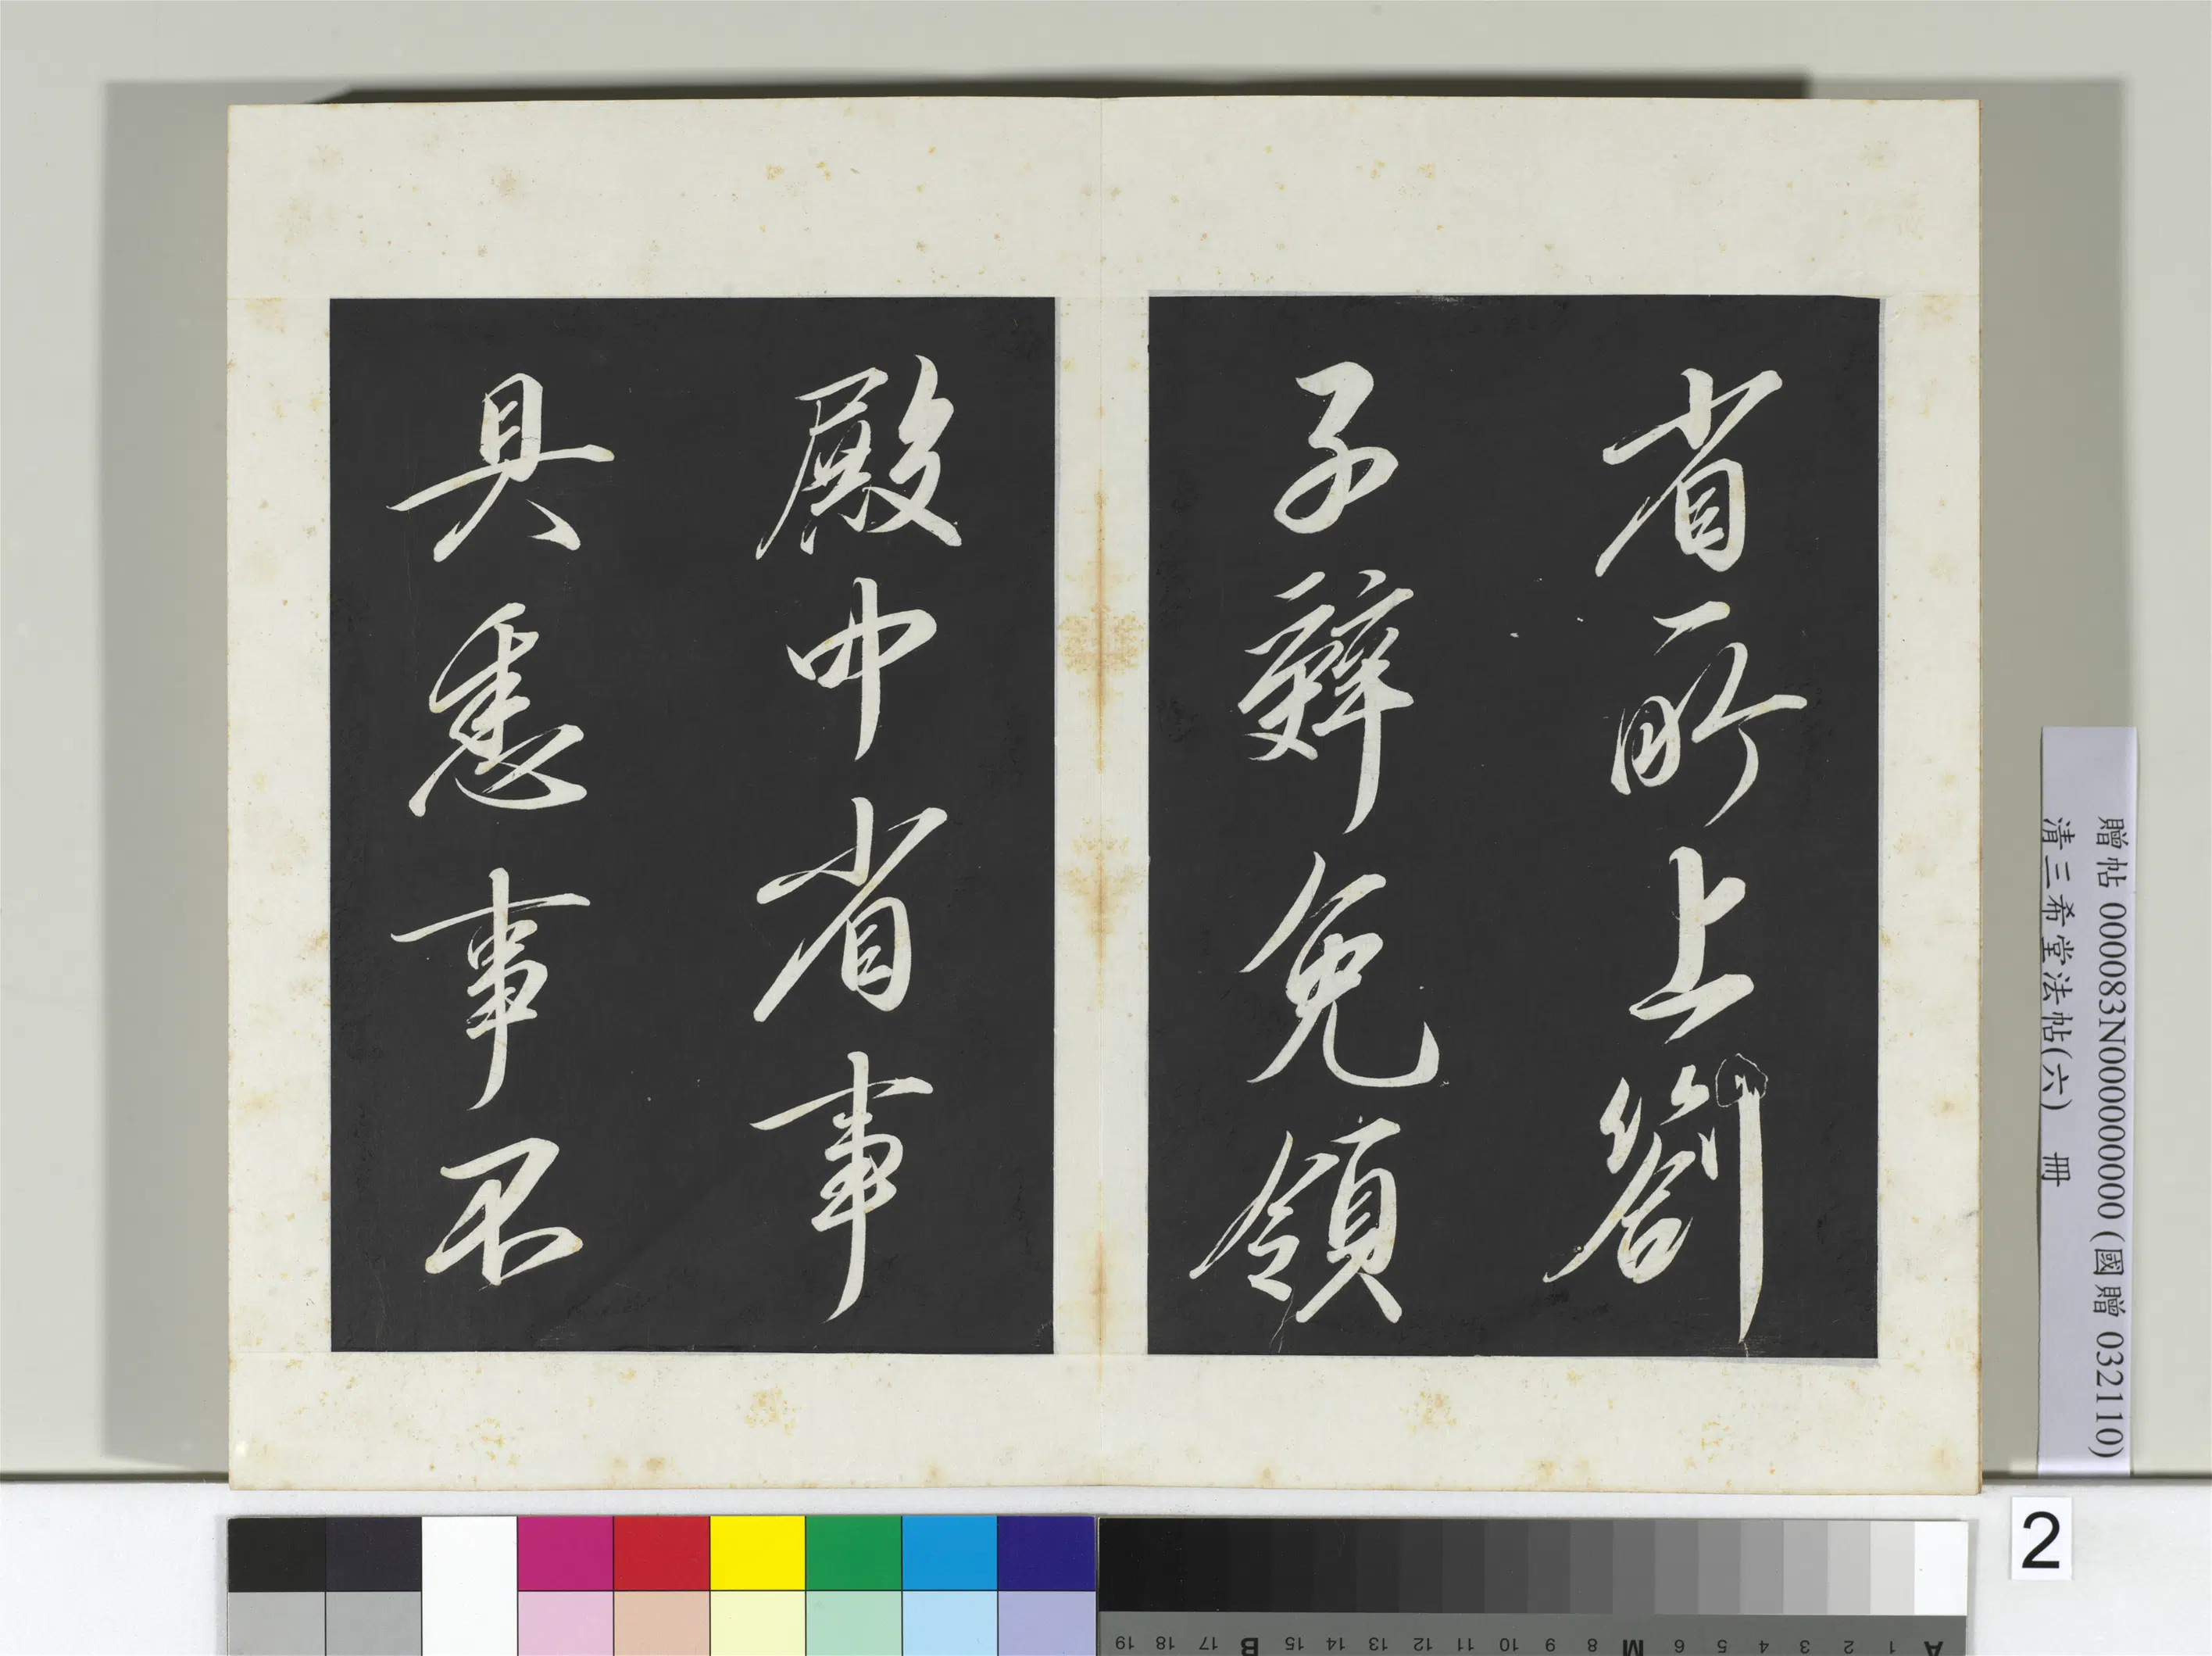 省所上劄
子辭免領
殿中省事
具悉事不
贈帖 000083N000000000 (國贈 032110)
清三希堂法帖(六) 冊
2
A 1 2 3 4 5 6 M 8 9 10 11 12 13 14 15 B 17 18 19